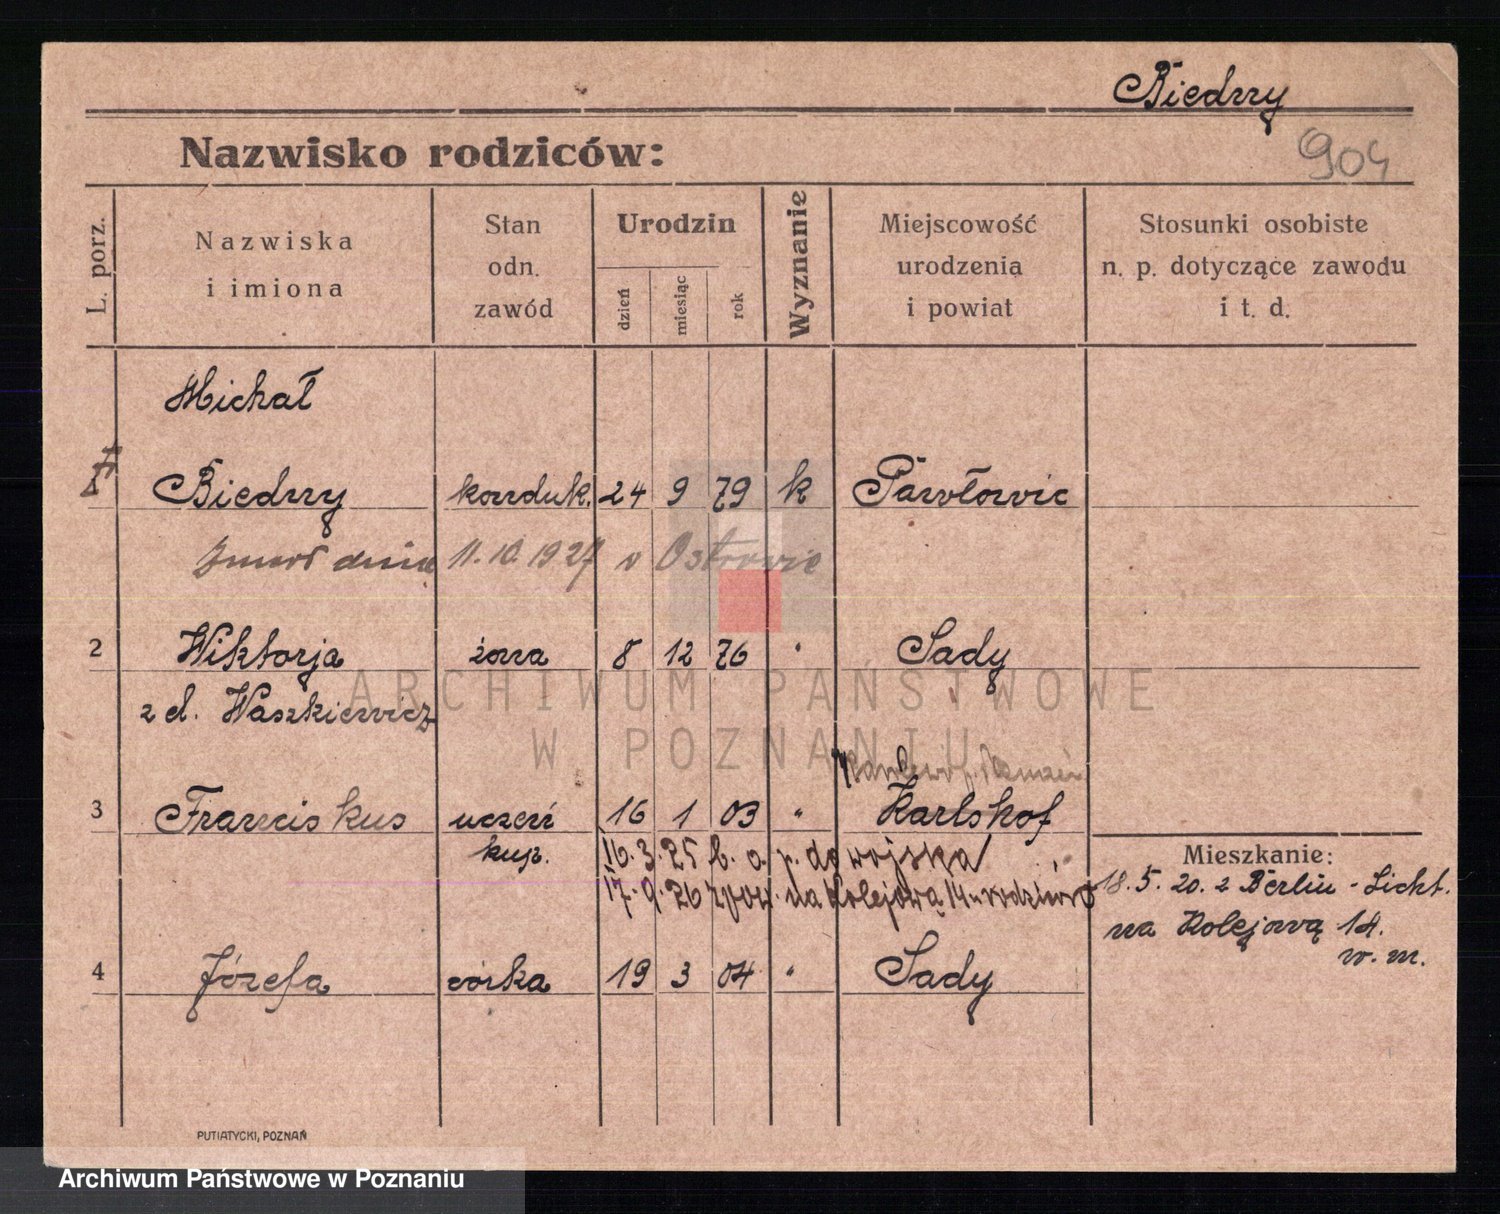 Biedny
904
Nazwisko rodziców:
L. porz.
Nazwiska
i imiona
Stan
odn.
zawód
Urodzin
dzień
miesiąc
rok
Wyznanie
Miejscowość
urodzenia
i powiat
Stosunki osobiste
n. p. dotyczące zawodu
i t. d.
Michał
Biedny konduk. 24 9 79 k Pawłowic
Zmarł dnia 11.10.1927 w Ostrowie
2 Wiktorja żona 8 12 76 " Sady
z d. Waszkiewicz
ARCHIWUM PAŃSTWOWE
W POZNANIU
3 Franciskus uczeń 16 1 03 " Karlshof
kup. 16.3.25 b. a. p. do wojska
17.9.26 na Kolejową 14 u rodziców
Mieszkanie:
18. 5. 20. z Berlin - Licht.
na Kolejową 14.
w. m.
4 Józefa córka 19 3 04 " Sady
PUTIATYCKI, POZNAŃ
Archiwum Państwowe w Poznaniu